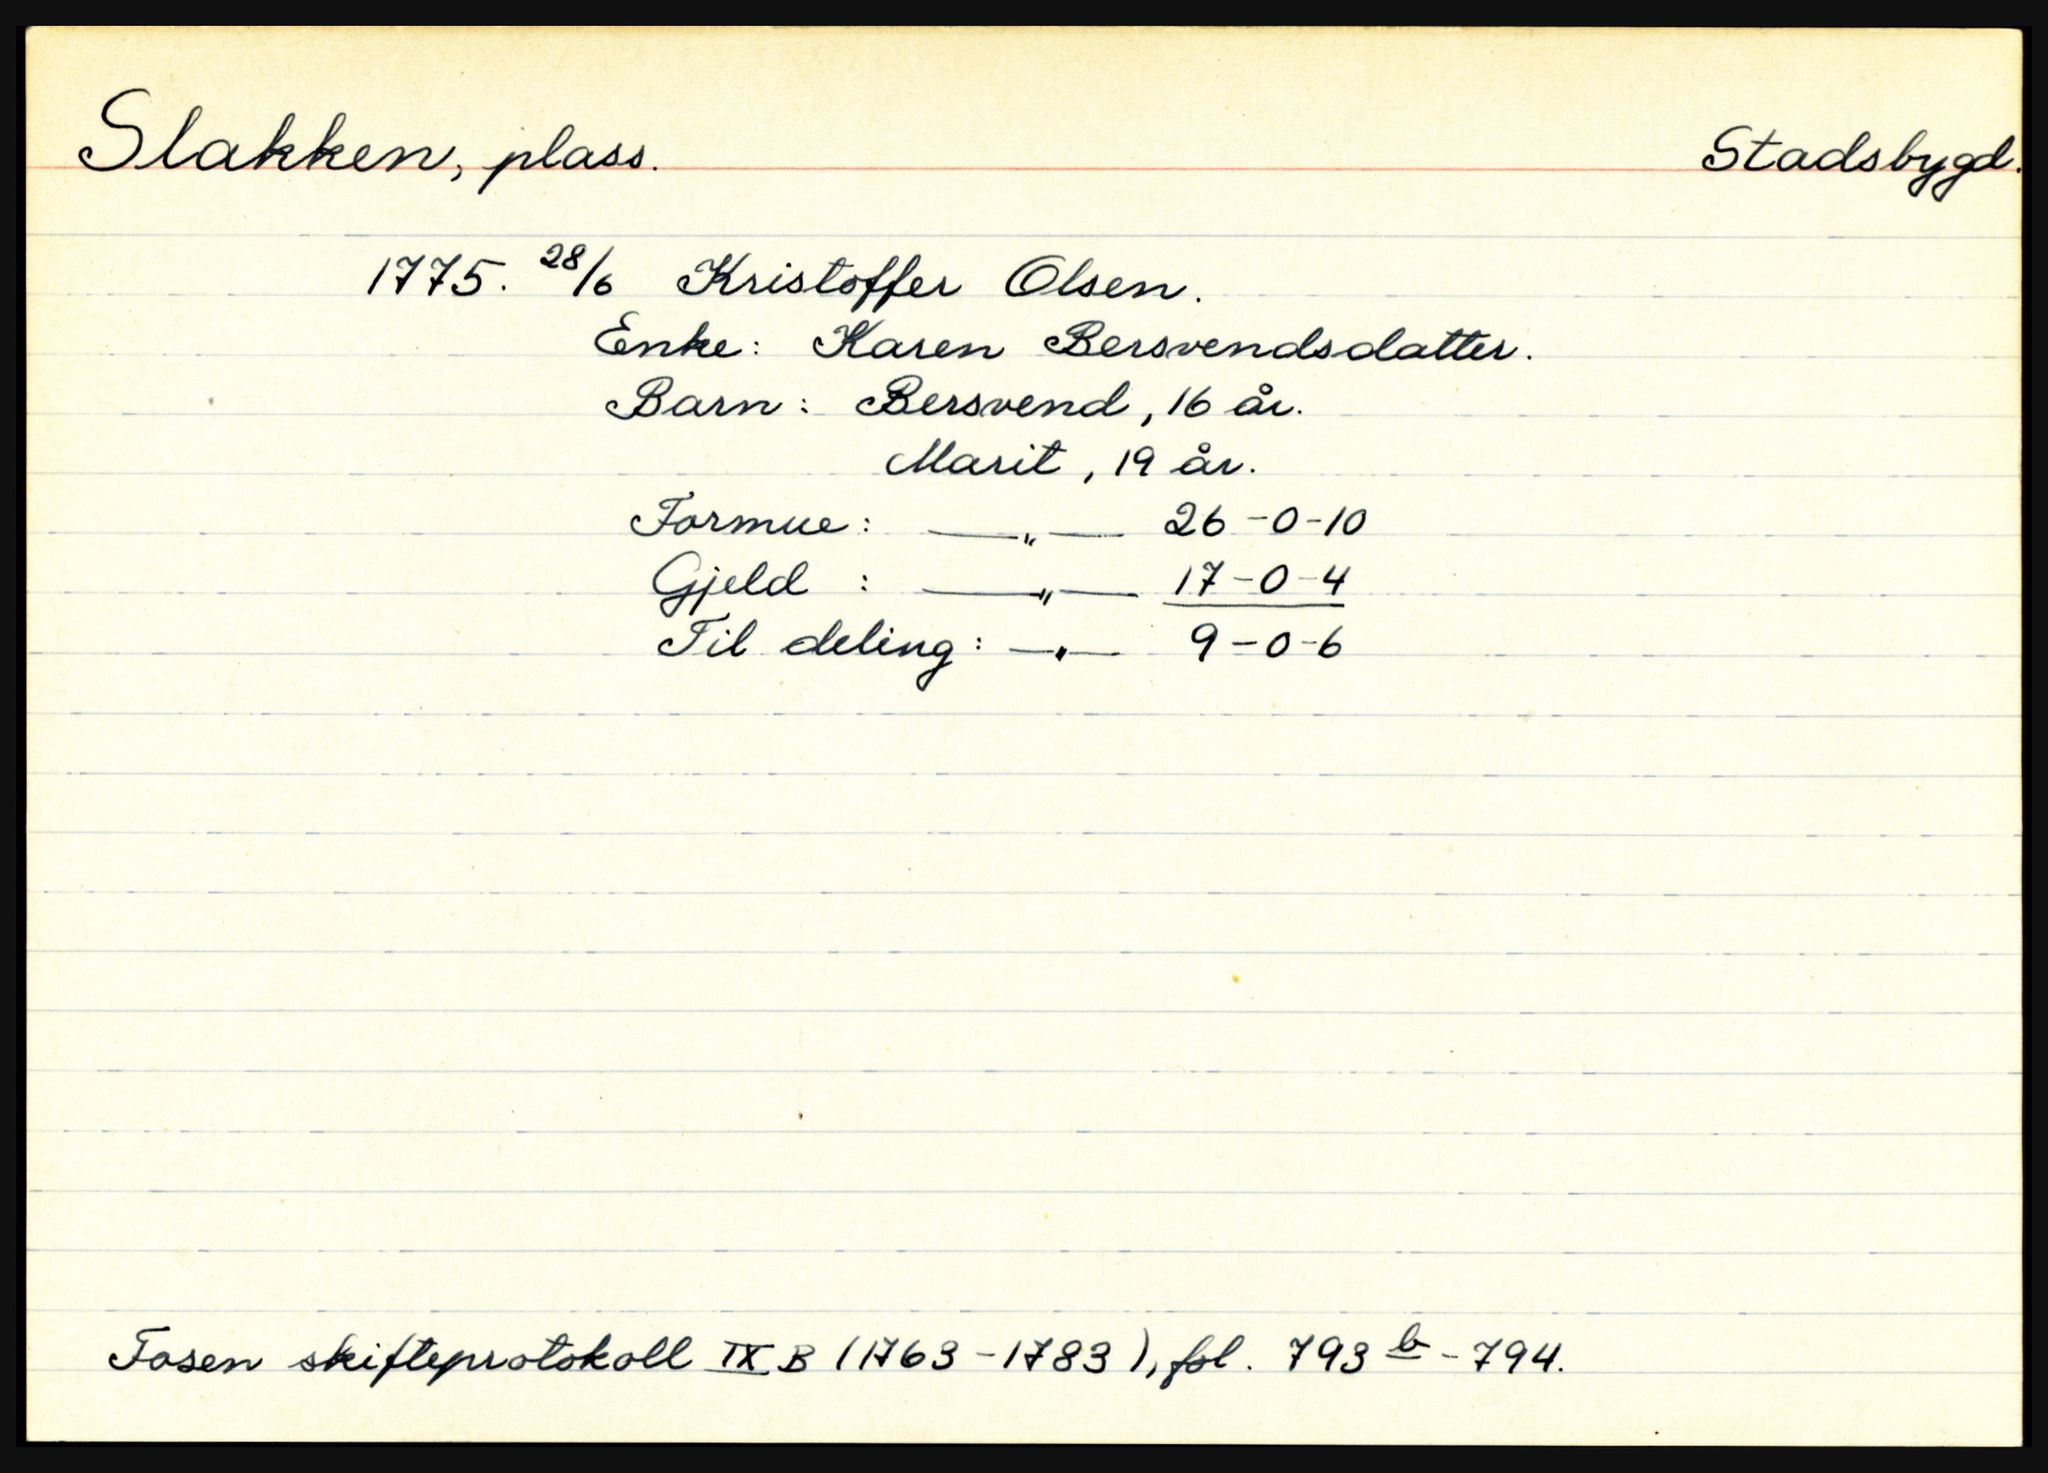 Slakken, plass. Stadsbygd.
1775. 28/6 Kristoffer Olsen.
Enke: Karen Bersvendsdatter.
Barn: Bersvend, 16 år.
Marit, 19 år.
Formue: —„— 26-0-10
Gjeld : —„— 17-0-4
Til deling: —„— 9-0-6
Fosen skifteprotokoll IX B (1763-1783), fol. 793 b - 794.